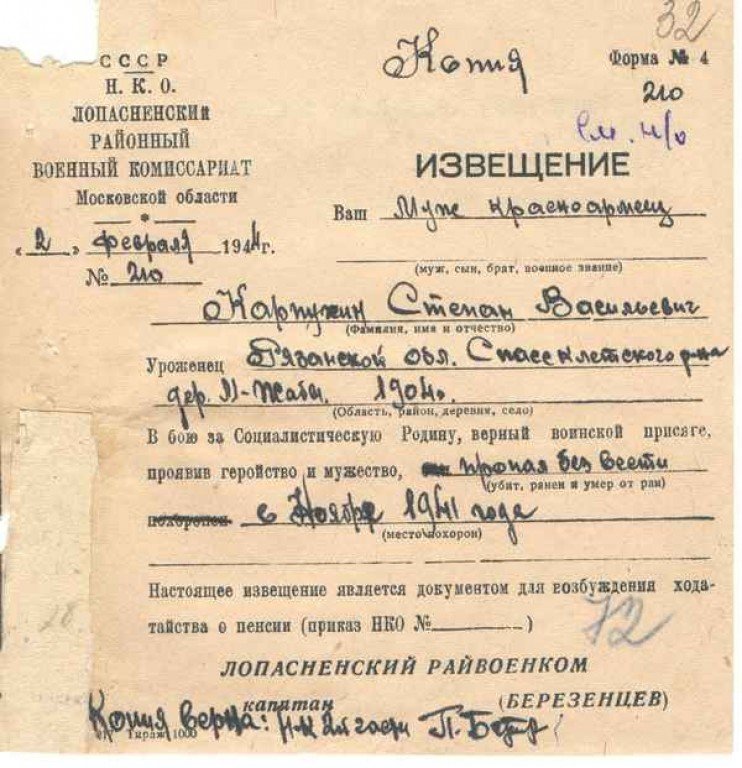 32
СССР
Н. К. О.
ЛОПАСНЕНСКИЙ
РАЙОННЫЙ
ВОЕННЫЙ КОМИССАРИАТ
Московской области
« 2 » февраля 1944 г.
№ 210
Копия
Форма № 4
210
См. н/о
ИЗВЕЩЕНИЕ
Ваш Муж красноармеец
(муж, сын, брат, военное звание)
Карпухин Степан Васильевич
(Фамилия, имя и отчество)
Уроженец Рязанской обл. Спасс Клетского р-на
дер. 1904.
(Область, район, деревня, село)
В бою за Социалистическую Родину, верный воинской присяге,
проявив геройство и мужество, пропал без вести
(убит, ранен и умер от ран)
похоронен с Ноября 1941 года
(место похорон)
Настоящее извещение является документом для возбуждения хода-
тайства о пенсии (приказ НКО № )
72
ЛОПАСНЕНСКИЙ РАЙВОЕНКОМ
капитан (БЕРЕЗЕНЦЕВ)
Копия верна:
Тираж 1000